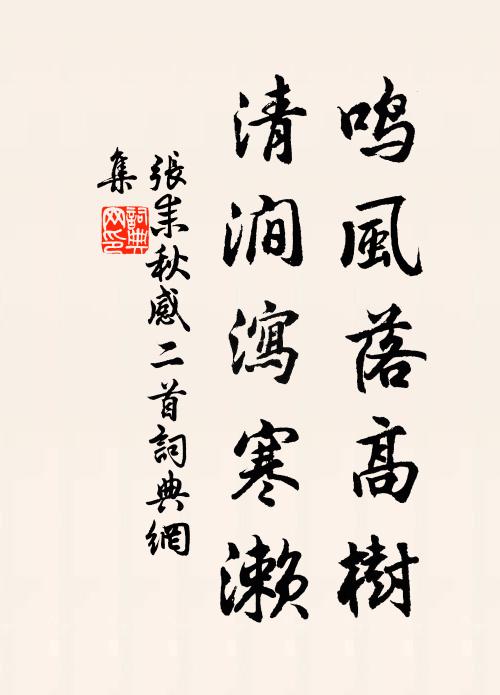 鸣風落高樹
清澗瀉寒濑
張耒秋感二首詞典網
集
詞典网印